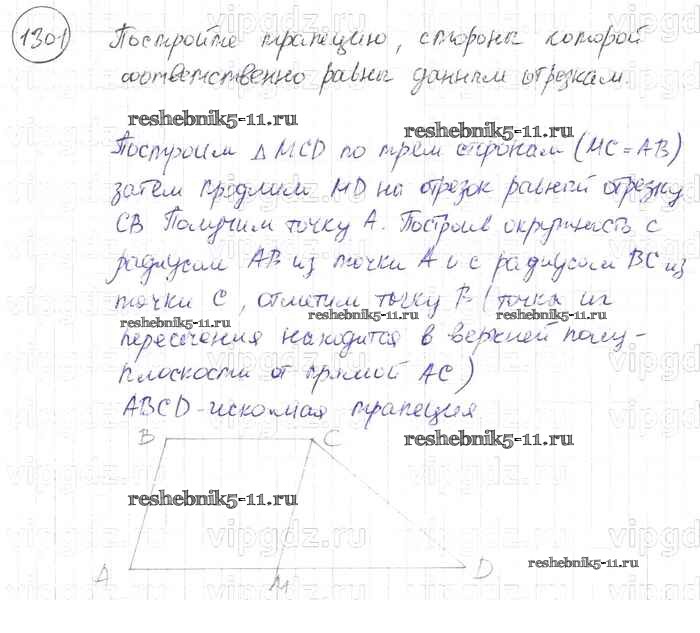 1301 Постройте трапецию, стороны которой
соответственно равны данным отрезкам.
reshebnik5-11.ru
Построим △ MCD по трем сторонам (MC = AB)
затем продлим MD на отрезок равный отрезку
CB Получим точку A. Построив окружность с
радиусом AB из точки A и с радиусом BC из
точки C, отметим точку B (точка их
reshebnik5-11.ru reshebnik5-11.ru
пересечения находится в верхней полу-
плоскости от прямой AC)
ABCD - искомая трапеция
B C
reshebnik5-11.ru
reshebnik5-11.ru
reshebnik5-11.ru
A M D
vipgdz.ru